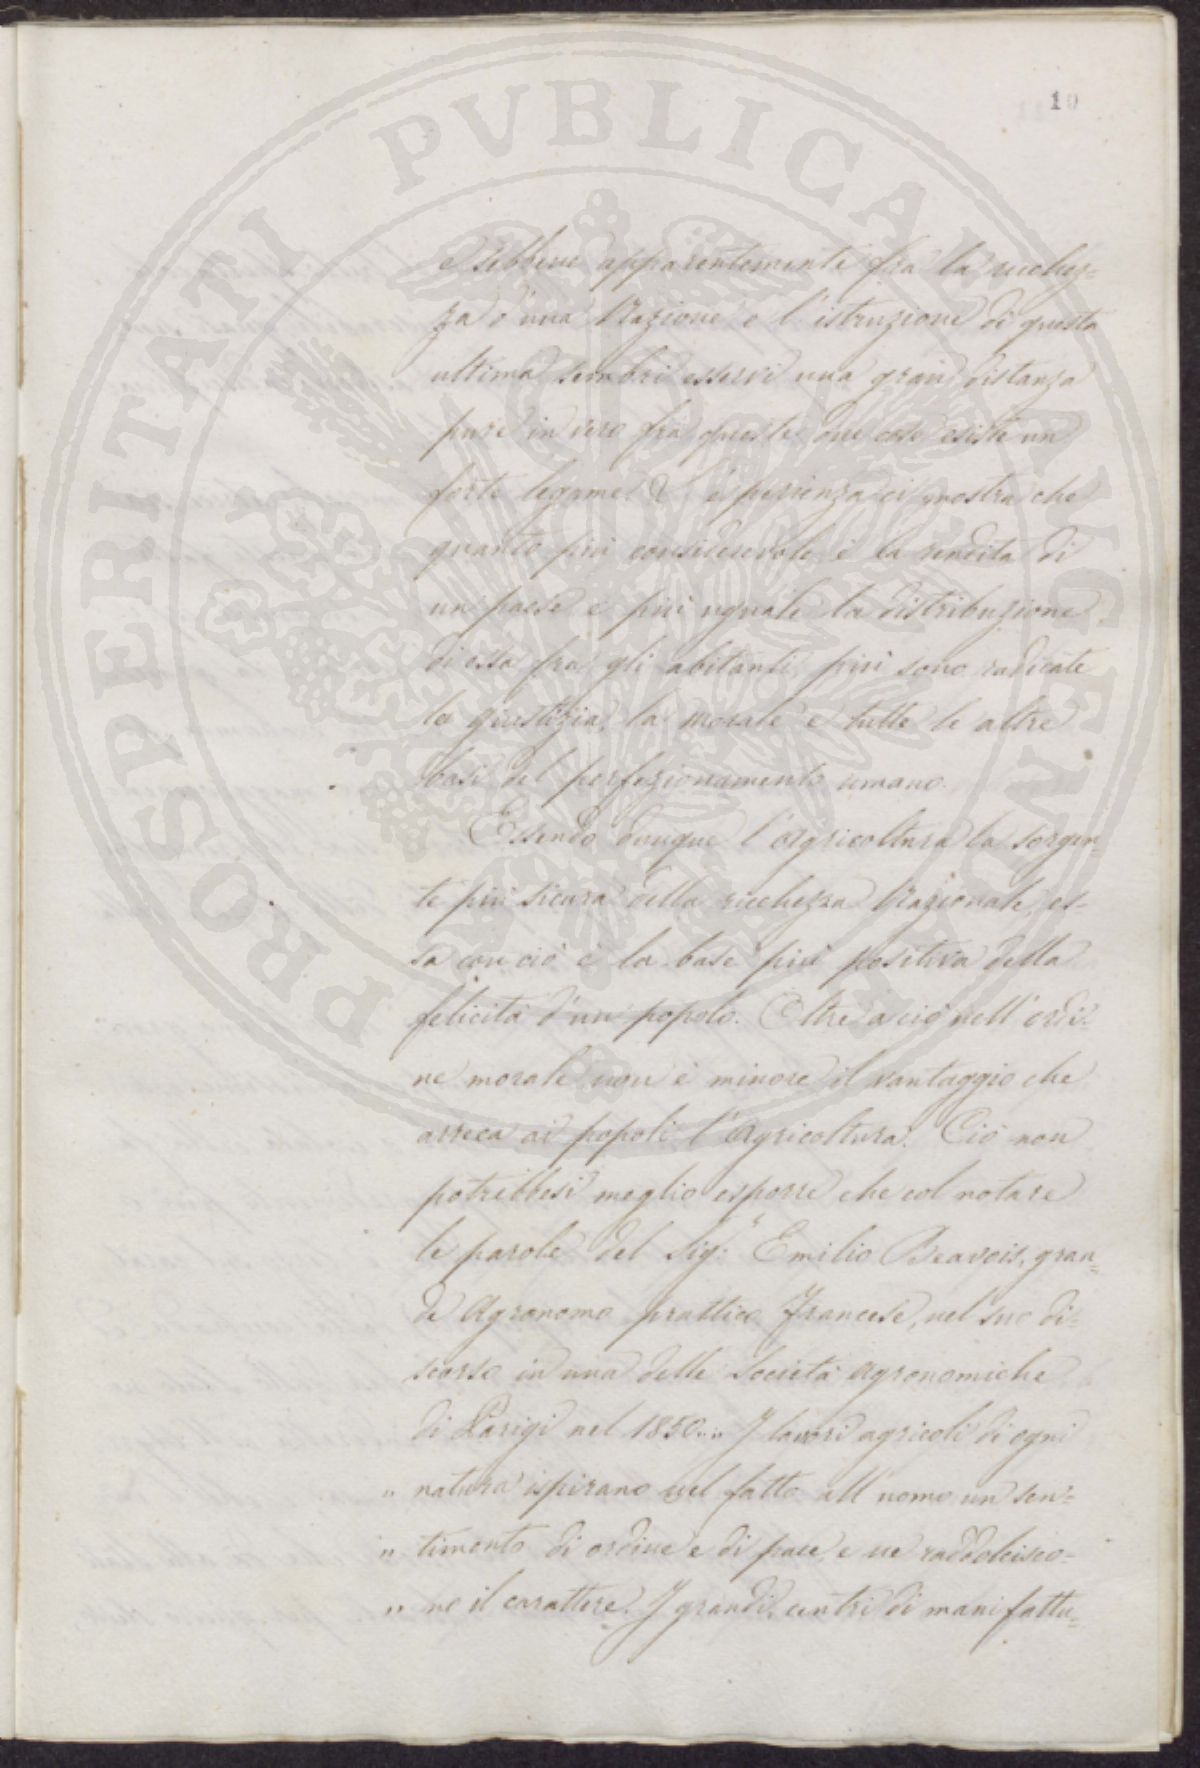 10
PROSPERITATI PVBLICAE AVGENDAE
e sebbene apparentemente fra la ricchez=
za d'una Nazione e l'istruzione di questa
ultima sembri esservi una gran distanza
pure in vero fra queste due cose esiste un
forte legame. E l'esperienza ci mostra che
quanto più considerevole è la rendita di
un paese e più uguale la distribuzione
di essa fra gli abitanti, più sono radicate
la giustizia, la morale e tutte le altre
basi del perfezionamento umano.
Essendo dunque l'Agricoltura la sorgen=
te più sicura della ricchezza Nazionale, es=
sa con ciò è la base più positiva della
felicità d'un popolo. Oltre a ciò nell'ordi=
ne morale non è minore il vantaggio che
arreca ai popoli l'Agricoltura. Ciò non
potrebbesi meglio esporre che col notare
le parole del Sig:r Emilio Beavois, gran=
de Agronomo prattico Francese, nel suo di=
scorso in una delle Società Agronomiche
di Parigi nel 1850. „ I lavori agricoli di ogni
„ natura ispirano nel fatto all'uomo un sen=
„ timento di ordine e di pace, e ne raddolcisco=
„ no il carattere. I grandi centri di manifattu=